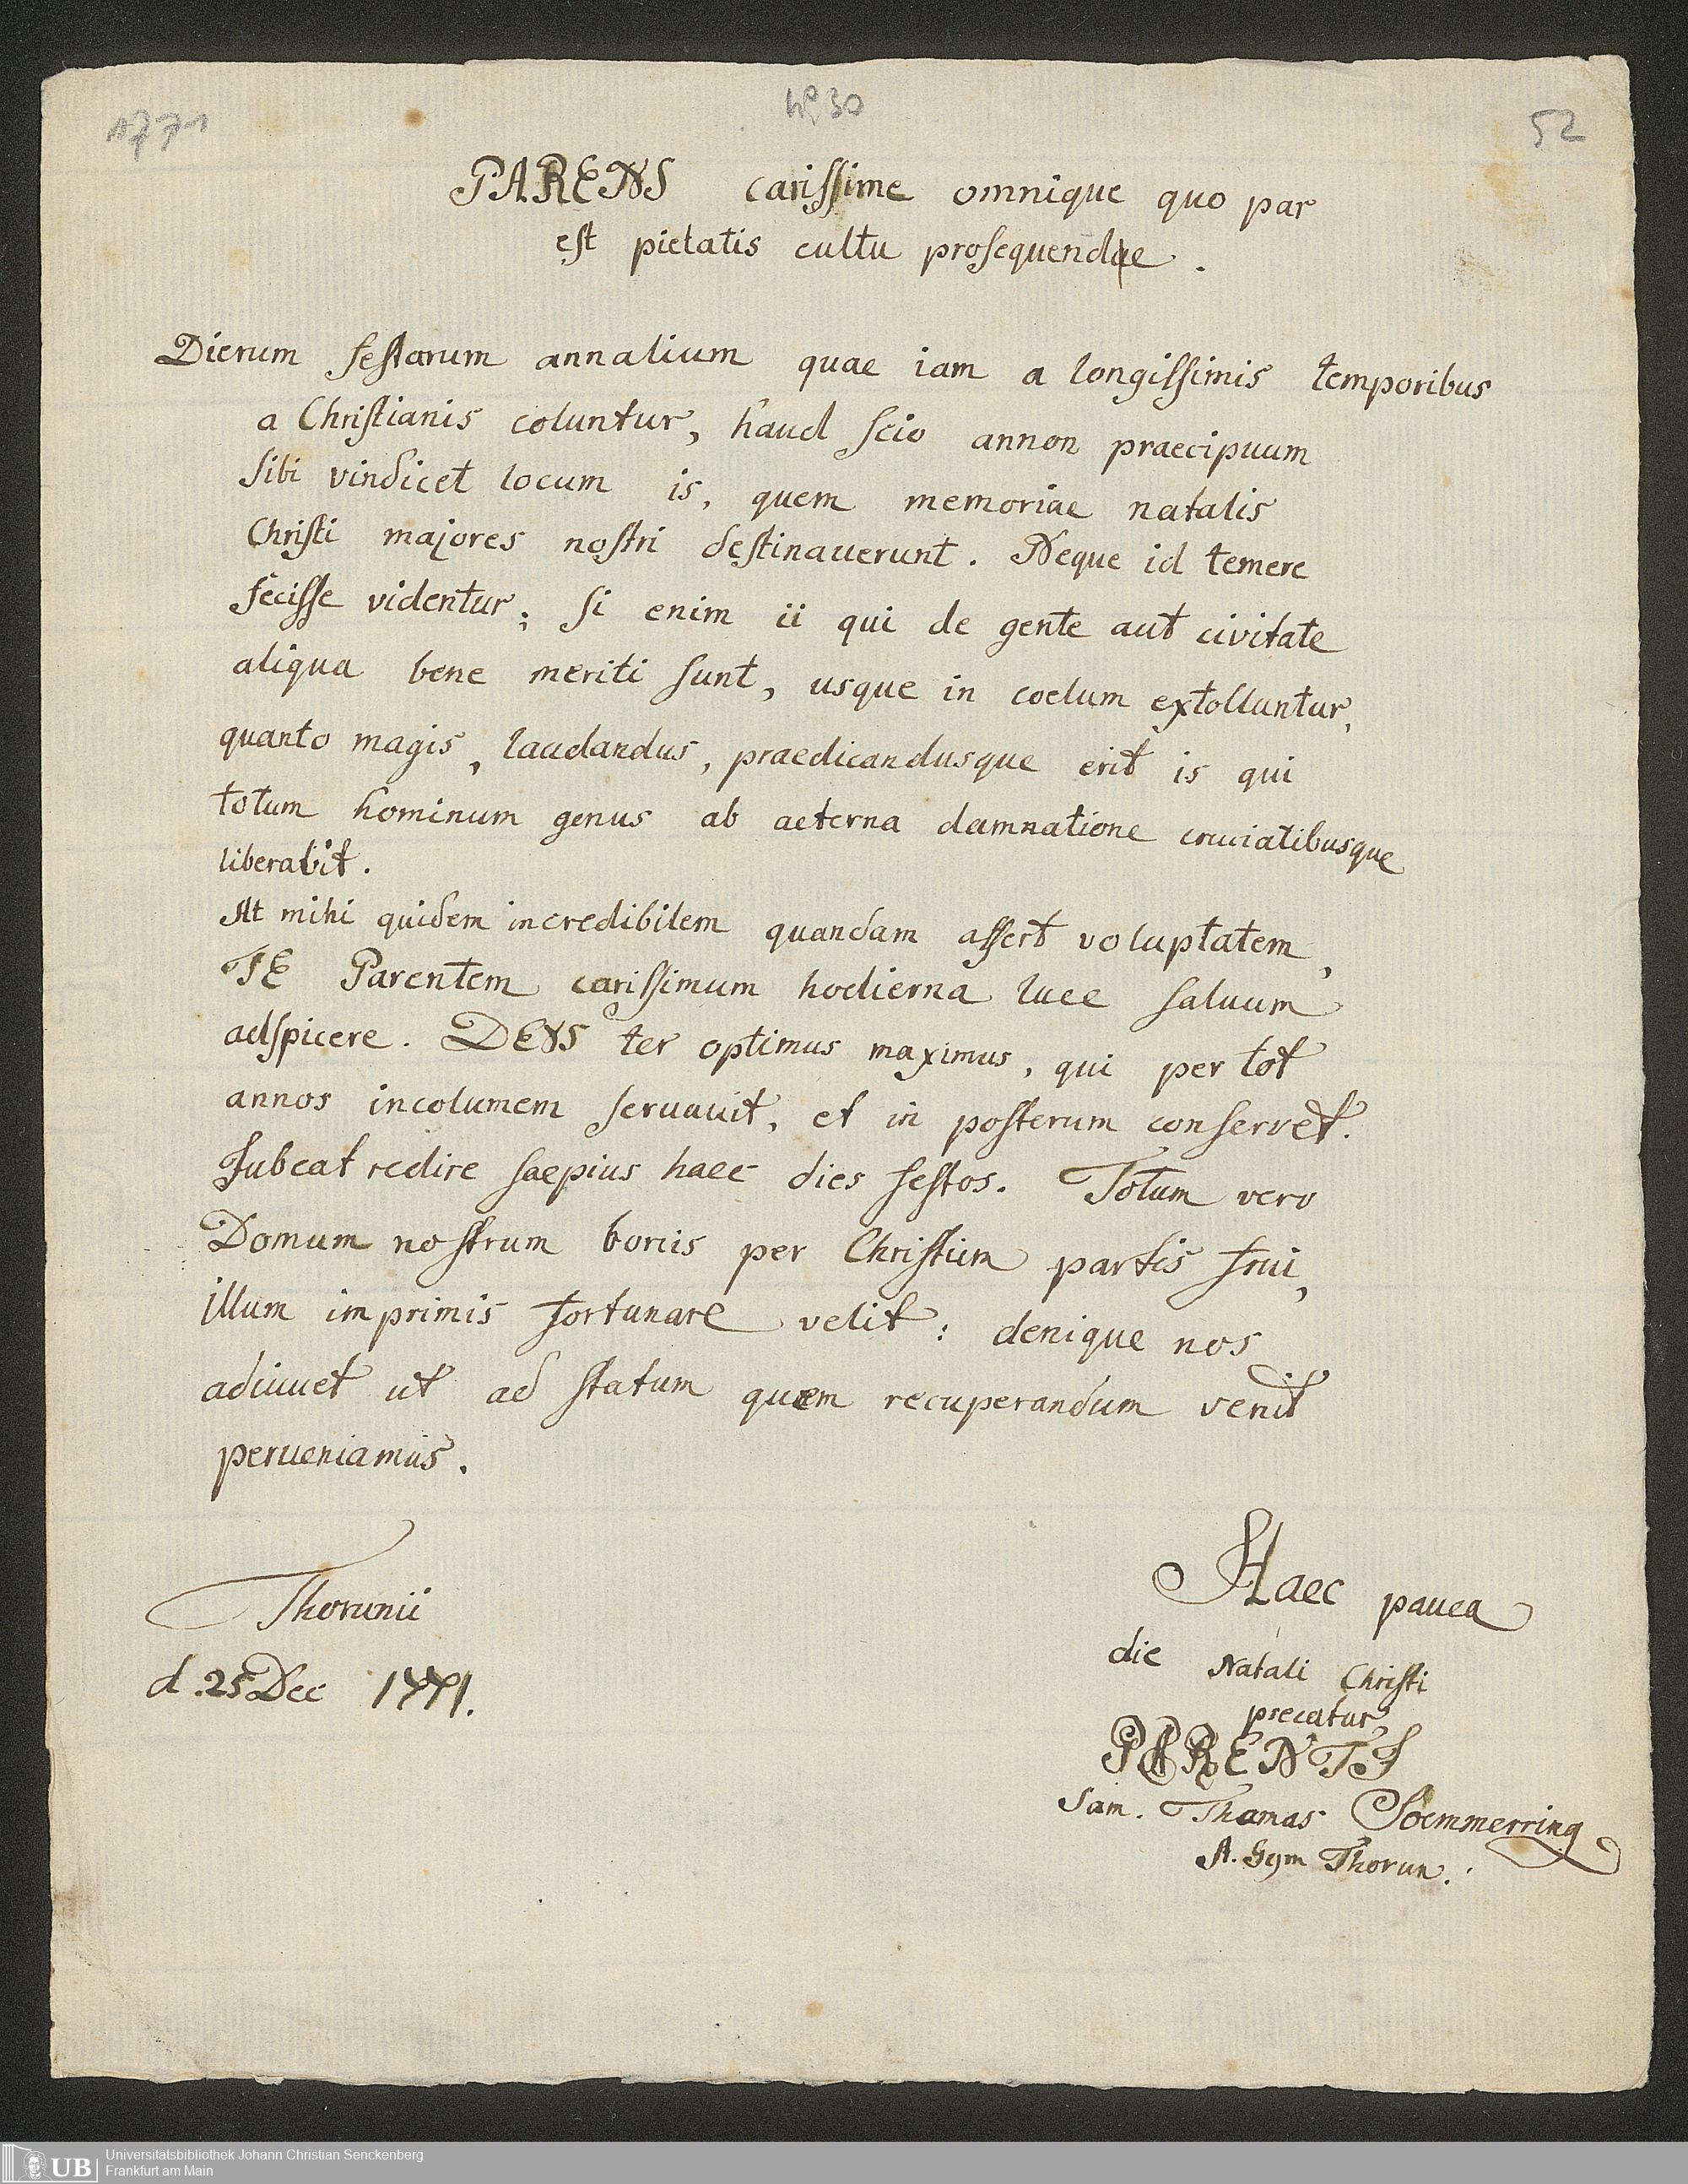 1771
No 30
52
PARENS cariſſime omnique quo par
eſt pietatis cultu proſequende.
Dierum feſtorum annalium quae iam a longiſſimis temporibus
a Chriſtianis coluntur, haud ſcio annon praecipuum
ſibi vindicet locum is, quem memoriae natalis
Chriſti majores noſtri deſtinauerunt. Neque id temere
feciſſe videntur; ſi enim ii qui de gente aut civitate
aliqua bene meriti ſunt, usque in coelum extolluntur,
quanto magis, laudandus, praedicandusque erit is qui
totum hominum genus ab aeterna damnatione cruciatibusque
liberabit.
At mihi quidem incredibilem quandam affert voluptatem,
TE Parentem cariſſimum hodierna luce ſaluum
adſpicere. DEVS ter optimus maximus, qui per tot
annos incolumem ſeruauit, et in poſterum conſervet.
Jubeat redire ſaepius haec dies feſtos. Totum vero
Domum noſtrum bonis per Chriſtum partis frui,
illum imprimis fortunare velit: denique nos
adiuuet ut ad ſtatum quem recuperandum venit
perueniamus.
Thorunii
d. 25 Dec 1771.
Haec pauca
die Natali Chriſti
precatur
PARENTI
Sam. Thomas Soemmerring
A. Gym Thorun.
UB
Universitätsbibliothek Johann Christian Senckenberg
Frankfurt am Main